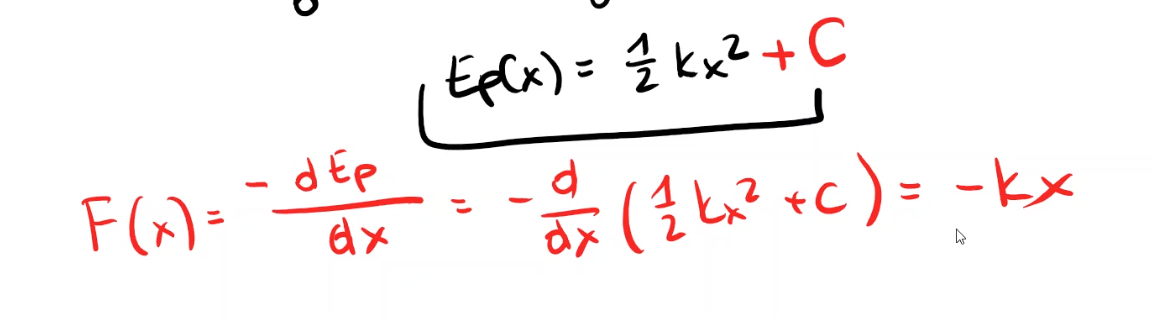 Ep(x) = 1/2 kx² + C
F(x) = -dEp/dx = -d/dx (1/2 kx² + C) = -kx